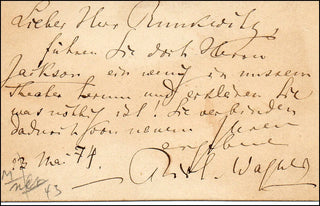 Lieber Herr Runkwitz,
führen Sie doch Herrn
Jackson ein wenig in unserem
theater herum und erklären Sie
was nöthig ist. Sie verbinden
dadurch von neuem Ihren
ergebenen
Rich. Wagner
2 Mai 74.
43